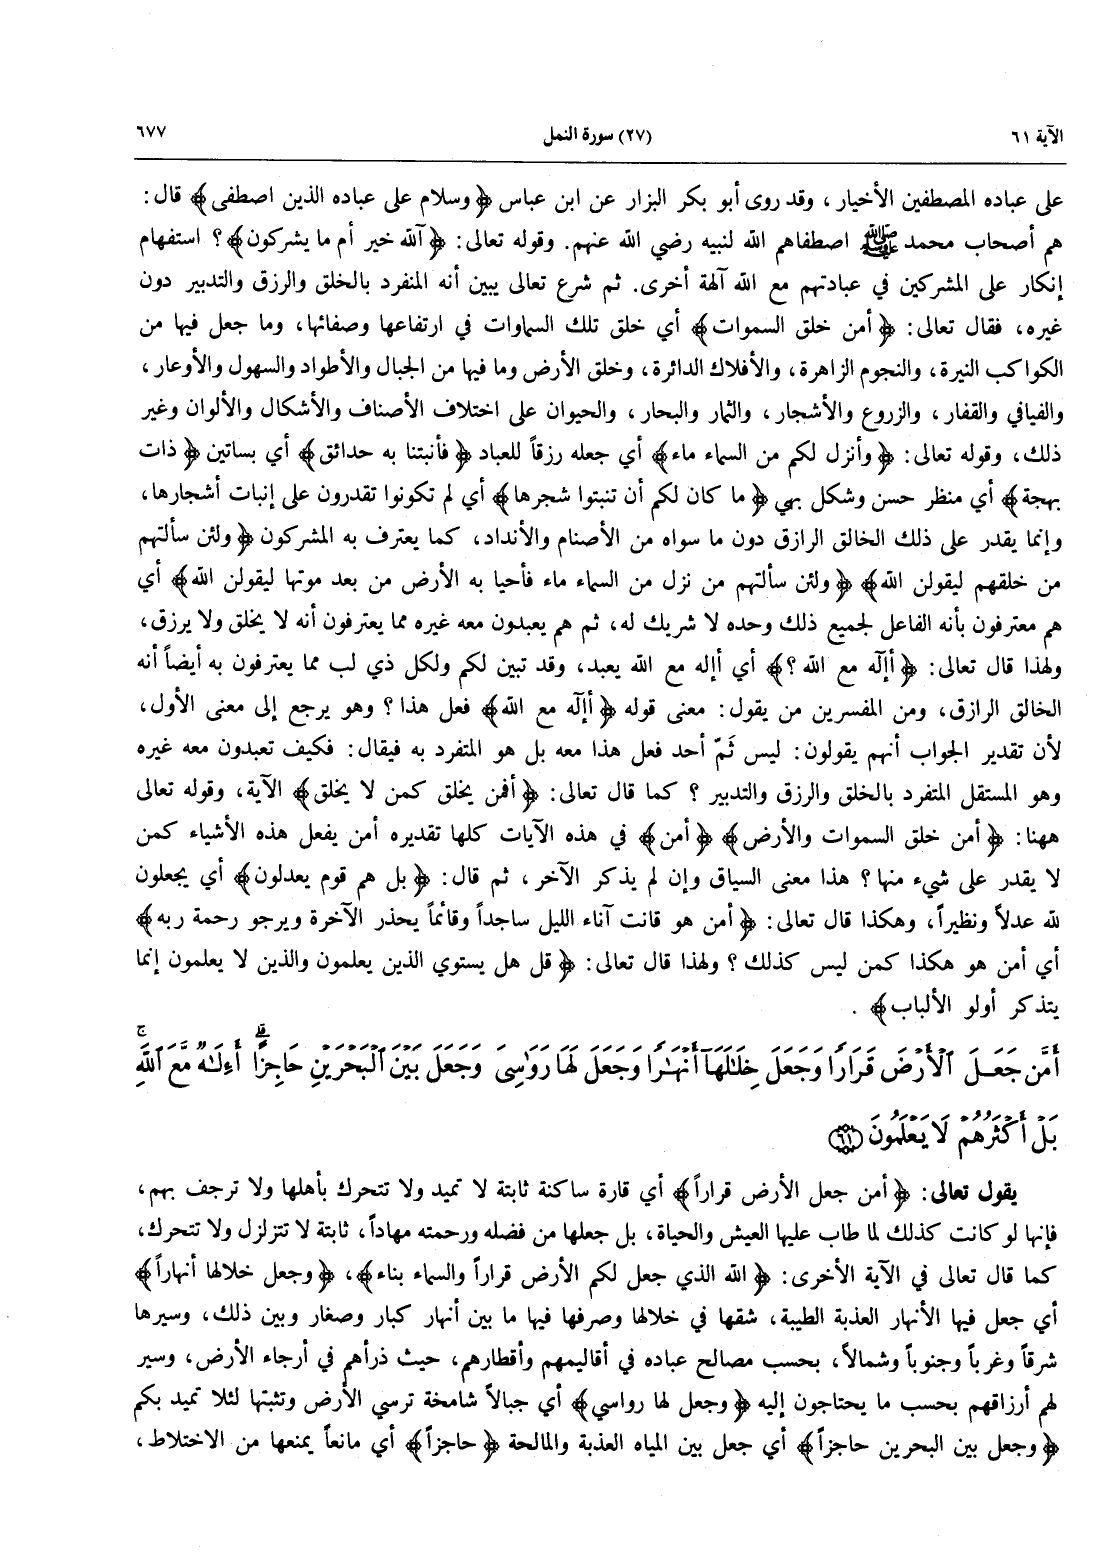 الآية ٦١ (٢٧) سورة النمل ٦٧٧
على عباده المصطفين الأخيار، وقد روى أبو بكر البزار عن ابن عباس ﴿وسلام على عباده الذين اصطفى﴾ قال:
هم أصحاب محمد ﷺ اصطفاهم الله لنبيه رضي الله عنهم. وقوله تعالى: ﴿آلله خير أم ما يشركون﴾؟ استفهام
إنكار على المشركين في عبادتهم مع الله آلهة أخرى. ثم شرع تعالى يبين أنه المنفرد بالخلق والرزق والتدبير دون
غيره، فقال تعالى: ﴿أمن خلق السموات﴾ أي خلق تلك السماوات في ارتفاعها وصفائها، وما جعل فيها من
الكواكب النيرة، والنجوم الزاهرة، والأفلاك الدائرة، وخلق الأرض وما فيها من الجبال والأطواد والسهول والأوعار،
والفيافي والقفار، والزروع والأشجار، والثمار والبحار، والحيوان على اختلاف الأصناف والأشكال والألوان وغير
ذلك، وقوله تعالى: ﴿وأنزل لكم من السماء ماء﴾ أي جعله رزقاً للعباد ﴿فأنبتنا به حدائق﴾ أي بساتين ﴿ذات
بهجة﴾ أي منظر حسن وشكل بهي ﴿ما كان لكم أن تنبتوا شجرها﴾ أي لم تكونوا تقدرون على إنبات أشجارها،
وإنما يقدر على ذلك الخالق الرازق دون ما سواه من الأصنام والأنداد، كما يعترف به المشركون ﴿ولئن سألتهم
من خلقهم ليقولن الله﴾ ﴿ولئن سألتهم من نزل من السماء ماء فأحيا به الأرض من بعد موتها ليقولن الله﴾ أي
هم معترفون بأنه الفاعل لجميع ذلك وحده لا شريك له، ثم هم يعبدون معه غيره مما يعترفون أنه لا يخلق ولا يرزق،
ولهذا قال تعالى: ﴿أإله مع الله؟﴾ أي أإله مع الله يعبد، وقد تبين لكم ولكل ذي لب مما يعترفون به أيضاً أنه
الخالق الرازق، ومن المفسرين من يقول: معنى قوله ﴿أإله مع الله﴾ فعل هذا؟ وهو يرجع إلى معنى الأول،
لأن تقدير الجواب أنهم يقولون: ليس ثَمّ أحد فعل هذا معه بل هو المتفرد به فيقال: فكيف تعبدون معه غيره
وهو المستقل المتفرد بالخلق والرزق والتدبير؟ كما قال تعالى: ﴿أفمن يخلق كمن لا يخلق﴾ الآية، وقوله تعالى
ههنا: ﴿أمن خلق السموات والأرض﴾ ﴿أمن﴾ في هذه الآيات كلها تقديره أمن يفعل هذه الأشياء كمن
لا يقدر على شيء منها؟ هذا معنى السياق وإن لم يذكر الآخر، ثم قال: ﴿بل هم قوم يعدلون﴾ أي يجعلون
لله عدلاً ونظيراً، وهكذا قال تعالى: ﴿أمن هو قانت آناء الليل ساجداً وقائماً يحذر الآخرة ويرجو رحمة ربه﴾
أي أمن هو هكذا كمن ليس كذلك؟ ولهذا قال تعالى: ﴿قل هل يستوي الذين يعلمون والذين لا يعلمون إنما
يتذكر أولو الألباب﴾.
أَمَّن جَعَلَ ٱلْأَرْضَ قَرَارًا وَجَعَلَ خِلَٰلَهَآ أَنْهَٰرًا وَجَعَلَ لَهَا رَوَٰسِىَ وَجَعَلَ بَيْنَ ٱلْبَحْرَيْنِ حَاجِزًا ۗ أَءِلَٰهٌ مَّعَ ٱللَّهِ ۚ
بَلْ أَكْثَرُهُمْ لَا يَعْلَمُونَ ﴿٦١﴾
يقول تعالى: ﴿أمن جعل الأرض قراراً﴾ أي قارة ساكنة ثابتة لا تميد ولا تتحرك بأهلها ولا ترجف بهم،
فإنها لو كانت كذلك لما طاب عليها العيش والحياة، بل جعلها من فضله ورحمته مهاداً، ثابتة لا تتزلزل ولا تتحرك،
كما قال تعالى في الآية الأخرى: ﴿الله الذي جعل لكم الأرض قراراً والسماء بناء﴾، ﴿وجعل خلالها أنهاراً﴾
أي جعل فيها الأنهار العذبة الطيبة، شقها في خلالها وصرفها فيها ما بين أنهار كبار وصغار وبين ذلك، وسيرها
شرقاً وغرباً وجنوباً وشمالاً، بحسب مصالح عباده في أقاليمهم وأقطارهم، حيث ذرأهم في أرجاء الأرض، وسير
لهم أرزاقهم بحسب ما يحتاجون إليه ﴿وجعل لها رواسي﴾ أي جبالاً شامخة ترسي الأرض وتثبتها لئلا تميد بكم
﴿وجعل بين البحرين حاجزاً﴾ أي جعل بين المياه العذبة والمالحة ﴿حاجزاً﴾ أي مانعاً يمنعها من الاختلاط،